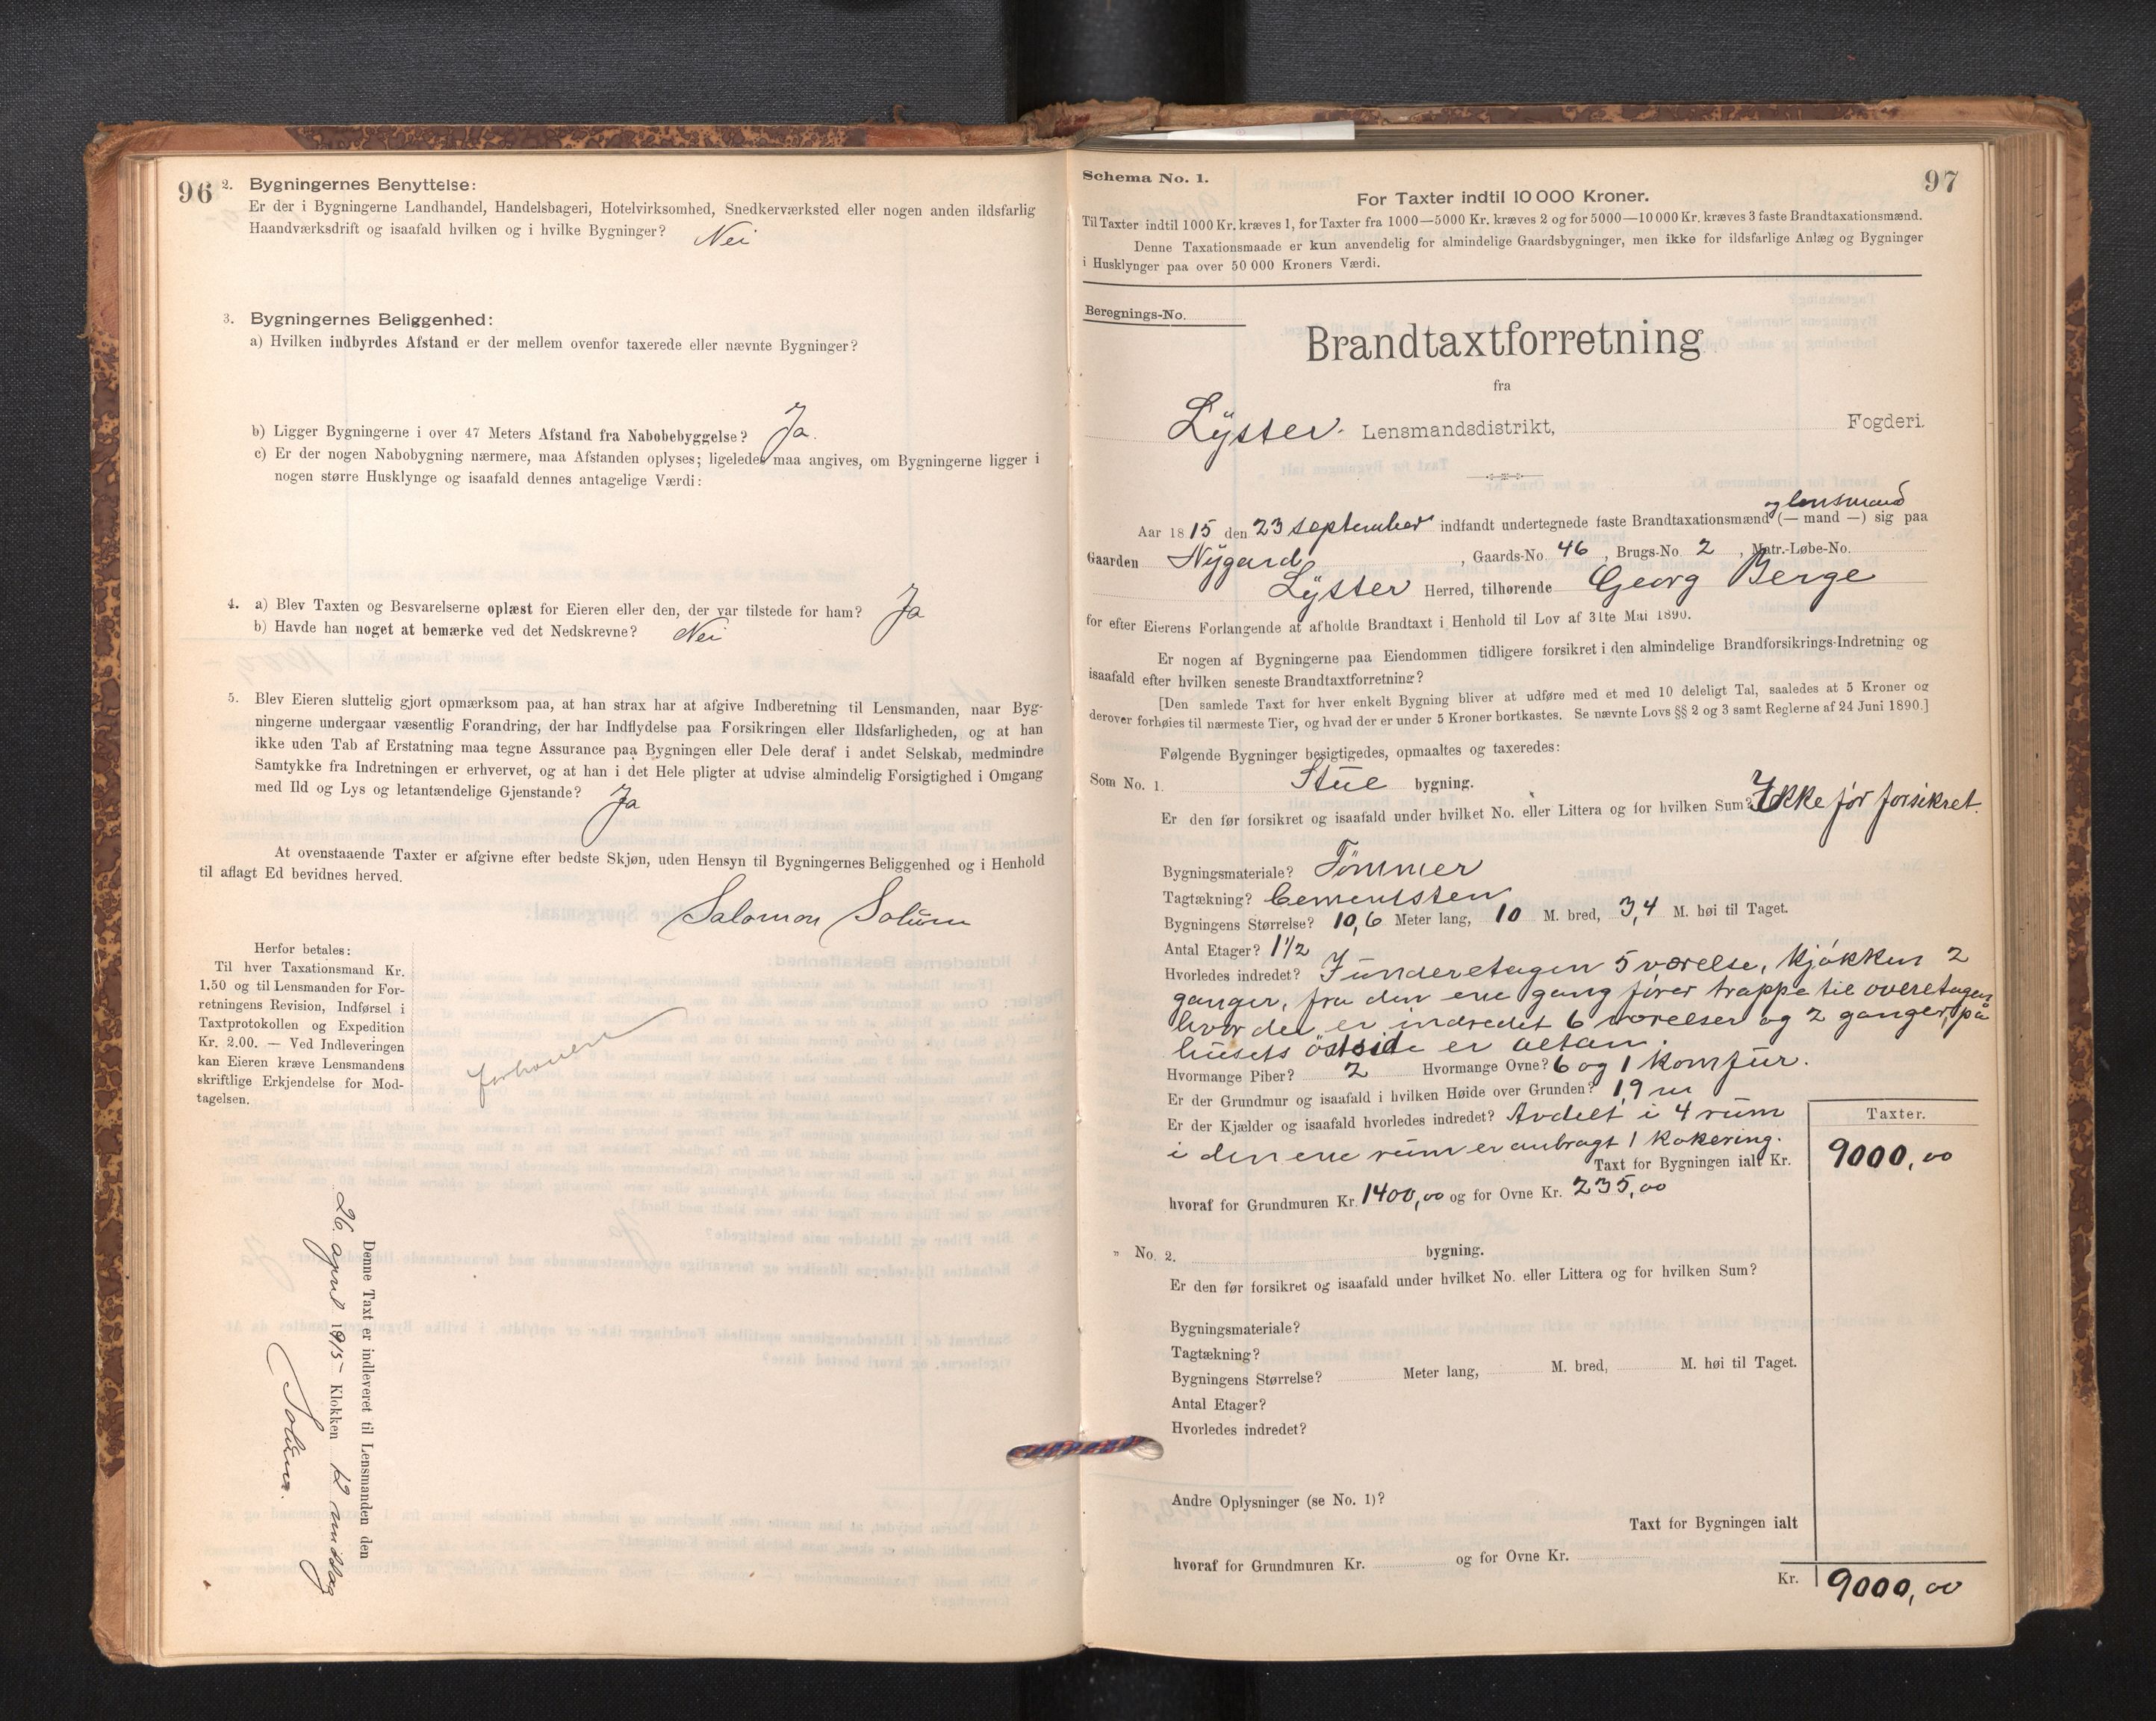 96
2. Bygningernes Benyttelse:
Er der i Bygningerne Landhandel, Handelsbageri, Hotelvirksomhed, Snedkerværksted eller nogen anden ildsfarlig
Haandværksdrift og isaafald hvilken og i hvilke Bygninger? Nei
3. Bygningernes Beliggenhed:
a) Hvilken indbyrdes Afstand er der mellem ovenfor taxerede eller nævnte Bygninger?
b) Ligger Bygningerne i over 47 Meters Afstand fra Nabobebyggelse? Ja.
c) Er der nogen Nabobygning nærmere, maa Afstanden oplyses; ligeledes maa angives, om Bygningerne ligger i
nogen større Husklynge og isaafald dennes antagelige Værdi:
4. a) Blev Taxten og Besvarelserne oplæst for Eieren eller den, der var tilstede for ham? Ja
b) Havde han noget at bemærke ved det Nedskrevne? Nei
5. Blev Eieren sluttelig gjort opmærksom paa, at han strax har at afgive Indberetning til Lensmanden, naar Byg-
ningerne undergaar væsentlig Forandring, der har Indflydelse paa Forsikringen eller Ildsfarligheden, og at han
ikke uden Tab af Erstatning maa tegne Assurance paa Bygningen eller Dele deraf i andet Selskab, medmindre
Samtykke fra Indretningen er erhvervet, og at han i det Hele pligter at udvise almindelig Forsigtighed i Omgang
med Ild og Lys og letantændelige Gjenstande? Ja
At ovenstaaende Taxter er afgivne efter bedste Skjøn, uden Hensyn til Bygningernes Beliggenhed og i Henhold
til aflagt Ed bevidnes herved.
Salomon Solum
Herfor betales:
Til hver Taxationsmand Kr.
1.50 og til Lensmanden for For-
retningens Revision, Indførsel i
Taxtprotokollen og Expedition
Kr. 2.00. — Ved Indleveringen
kan Eieren kræve Lensmandens
skriftlige Erkjendelse for Mod-
tagelsen.
Denne Taxt er indleveret til Lensmanden den
26 april 1915 Klokken 12 middag
Solum.
97
Schema No. 1.
For Taxter indtil 10 000 Kroner.
Til Taxter indtil 1000 Kr. kræves 1, for Taxter fra 1000—5000 Kr. kræves 2 og for 5000—10 000 Kr. kræves 3 faste Brandtaxationsmænd.
Denne Taxationsmaade er kun anvendelig for almindelige Gaardsbygninger, men ikke for ildsfarlige Anlæg og Bygninger
i Husklynger paa over 50 000 Kroners Værdi.
Beregnings-No.
Brandtaxtforretning
fra
Lyster Lensmandsdistrikt, Fogderi.
og lensmand
Aar 18 15 den 23 september indfandt undertegnede faste Brandtaxationsmænd (— mand —) sig paa
Gaarden Nygard, Gaards-No. 46, Brugs-No. 2, Matr.-Løbe-No.
Lyster Herred, tilhørende Georg Berge
for efter Eierens Forlangende at afholde Brandtaxt i Henhold til Lov af 31te Mai 1890.
Er nogen af Bygningerne paa Eiendommen tidligere forsikret i den almindelige Brandforsikrings-Indretning og
isaafald efter hvilken seneste Brandtaxtforretning?
[Den samlede Taxt for hver enkelt Bygning bliver at udføre med et med 10 deleligt Tal, saaledes at 5 Kroner og
derover forhøies til nærmeste Tier, og hvad der er under 5 Kroner bortkastes. Se nævnte Lovs §§ 2 og 3 samt Reglerne af 24 Juni 1890.]
Følgende Bygninger besigtigedes, opmaaltes og taxeredes:
Som No. 1. Stue bygning.
Er den før forsikret og isaafald under hvilket No. eller Littera og for hvilken Sum? Ikke før forsikret.
Bygningsmateriale? Tømmer
Tagtækning? Cementsten
Bygningens Størrelse? 10,6 Meter lang, 10 M. bred, 3,4 M. høi til Taget.
Antal Etager? 1½
Hvorledes indredet? I underetagen 5 værelse, kjøkken 2
ganger, fra den ene gang fører trappe til overetagen
hvor der er indredet 6 værelser og 2 ganger, på
husets østside er altan.
Hvormange Piber? 2 Hvormange Ovne? 6 og 1 komfur.
Er der Grundmur og isaafald i hvilken Høide over Grunden? 1,9 m
Er der Kjælder og isaafald hvorledes indredet? Avdelt i 4 rum
i den ene rum er anbragt 1 kokering.
Taxter.
Taxt for Bygningen ialt Kr. 9000,00
hvoraf for Grundmuren Kr. 1400,00 og for Ovne Kr. 235,00
„ No. 2. bygning.
Er den før forsikret og isaafald under hvilket No. eller Littera og for hvilken Sum?
Bygningsmateriale?
Tagtækning?
Bygningens Størrelse? Meter lang, M. bred, M. høi til Taget.
Antal Etager?
Hvorledes indredet?
Andre Oplysninger (se No. 1)?
Taxt for Bygningen ialt
hvoraf for Grundmuren Kr. og for Ovne Kr.
Kr. 9000,00